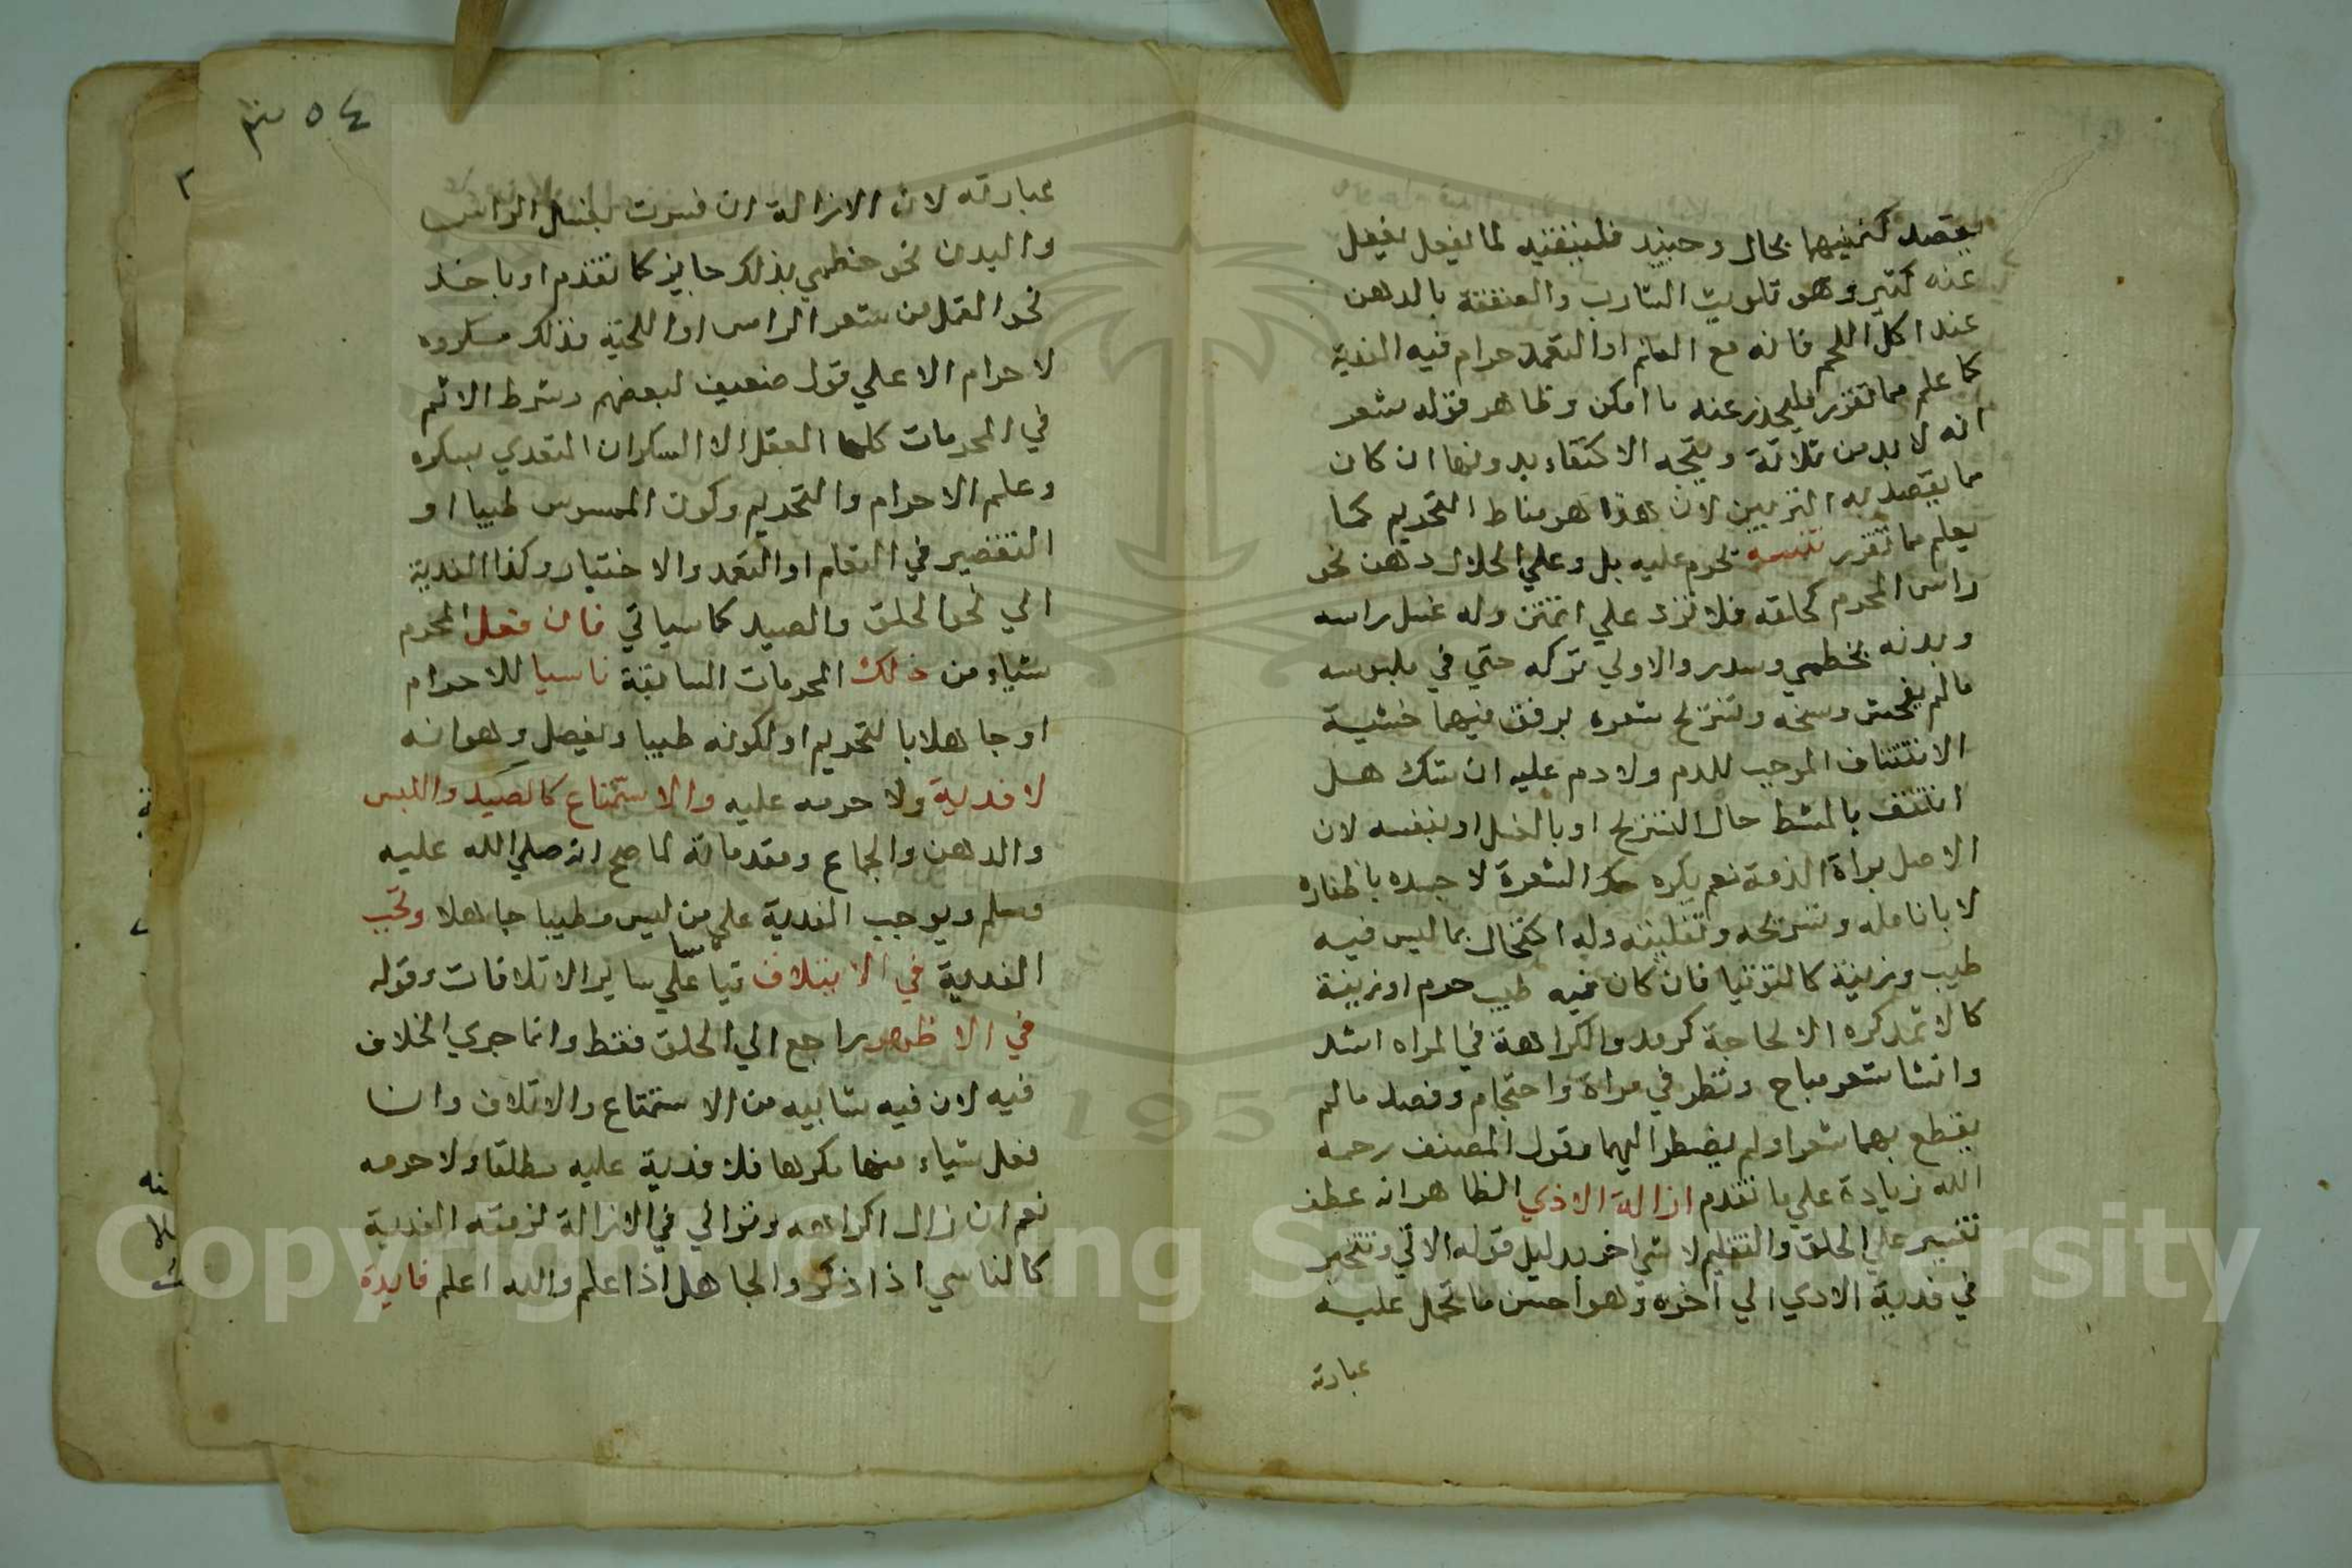 يقصد تنميتها بحال وحينيذ فليتنبه لما يغفل
عنه كثير وهو تلويث الشارب والعنفقة بالدهن
عند اكل اللحم فانه مع العلم او التعمد حرام فيه الفدية
كما علم مما تقرر فليحذر عنه ما امكن وظاهر قوله شعر
انه لا بد من ثلاثة ويتجه الاكتفاء بدونها ان كان
مما يقصد به التزيين لان هذا هو مناط التحريم كما
يعلم مما تقرر تنبيه يحرم عليه بل وعلي الحلال دهن نحو
راس المحرم كحلقه فلا تزد علي اثنتين وله غسل راسه
وبدنه بخطمي وسدر والاولي تركه حتي في ملبوسه
مالم يفحش وسخه وتسريح شعره برفق فيهما خشية
الانتتاف الموجب للدم ولا دم عليه ان شك هل
انتتف بالمشط حال التسريح او بالغسل او بنفسه لان
الاصل براة الذمة نعم يكره حك الشعرة لا جسده باظفاره
لا بانامله وتسريحه وتفليته وله اكتحال بما ليس فيه
طيب وزينة كالتوتيا فان كان فيه طيب حرم او زينة
كالاثمد كره الا لحاجة كرمد والكراهة في المراه اشد
وانشا شعر مباح ونظر في مراة واحتجام وفصد مالم
يقطع بهما شعرا ولم يضطر اليهما وقول المصنف رحمه
الله زيادة علي ما تقدم ازالة الاذي الظاهر انه عطف
تفسير علي الحلق والتقليم لا شي اخر بدليل قوله الاتي ويتخير
في فدية الاذي الي اخره وهو احسن ما تحمل عليه
عبارته
٥٤
عبارته لان الازالة ان فسرت بغسل الراس
والبدن نحو خطمي بذلك جايز كما تقدم او باخذ
نحو القمل من شعر الراس او اللحية فذلك مكروه
لا حرام الا علي قول ضعيف لبعضهم وشرط الاثم
في المحرمات كلها العقل الا السكران المتعدي بسكره
وعلم الاحرام والتحريم وكون الممسوس طيبا او
التقصير في التعلم او التعمد والاختيار وكذا الفدية
الي نحو الحلق والصيد كما سياتي فان فعل المحرم
شياء من ذلك المحرمات السابقة ناسيا للاحرام
او جاهلا بالتحريم او لكونه طيبا وبفصل وهو انه
لا فدية ولا حرمه عليه والاستمتاع كالصيد واللبس
والدهن والجماع ومقدماته لما صح انه صلي الله عليه
وسلم ويوجب الفدية علي من لبس وطيبا جاهلا وتجب
الفدية في الاتلاف قيا علي ساير الاتلافات وقوله
في الاظهر راجع الي الحلق فقط وانما جري الخلاف
فيه لان فيه شايبه من الاستمتاع والاتلاف وان
فعل شياء منها مكرها فلا فدية عليه مطلقا ولا حرمه
نعم ان زال اكراهه وتوالي في الازالة لزمته الفدية
كالناسي اذا ذكر والجاهل اذا علم والله اعلم فايدة
Copyright © King Saud University
195